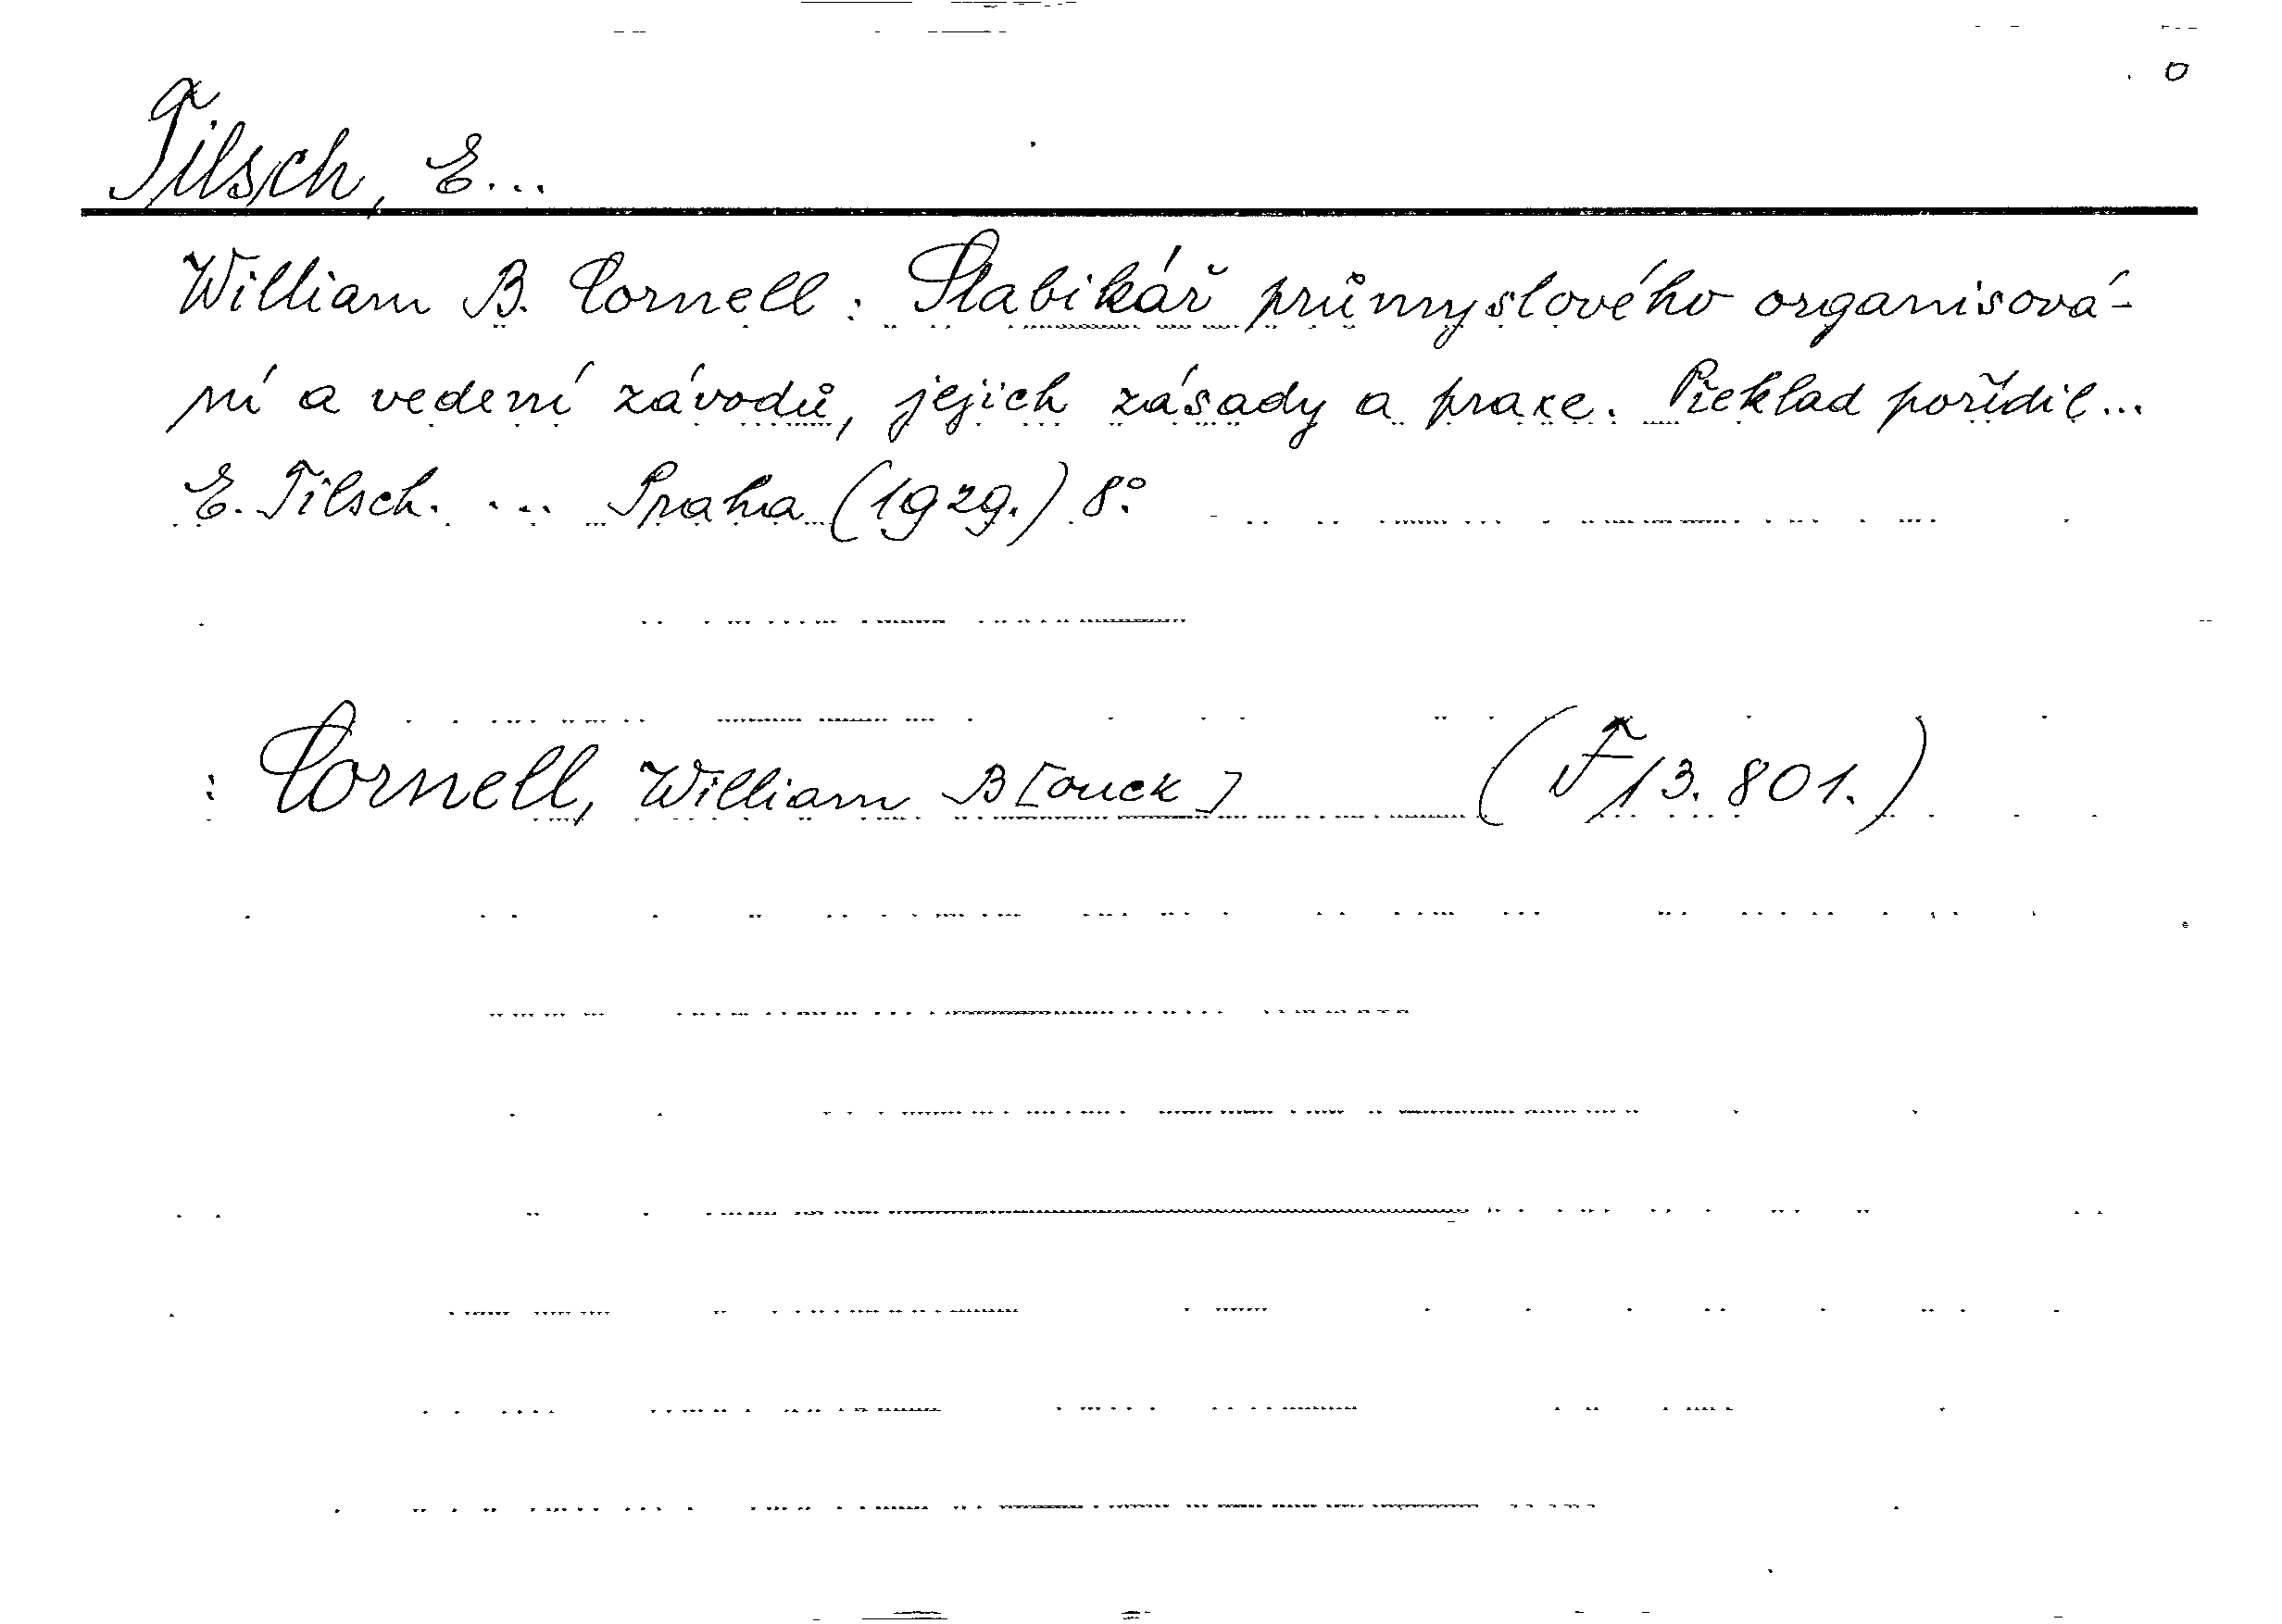 o
Tilsch, E...
William B. Cornell: Slabikář průmyslového organisová-
ní a vedení závodů, jejich zásady a praxe. Překlad pořídil...
E. Tilsch. ... Praha (1929.) 8°.
: Cornell, William B[ouck] (F 13.801.)